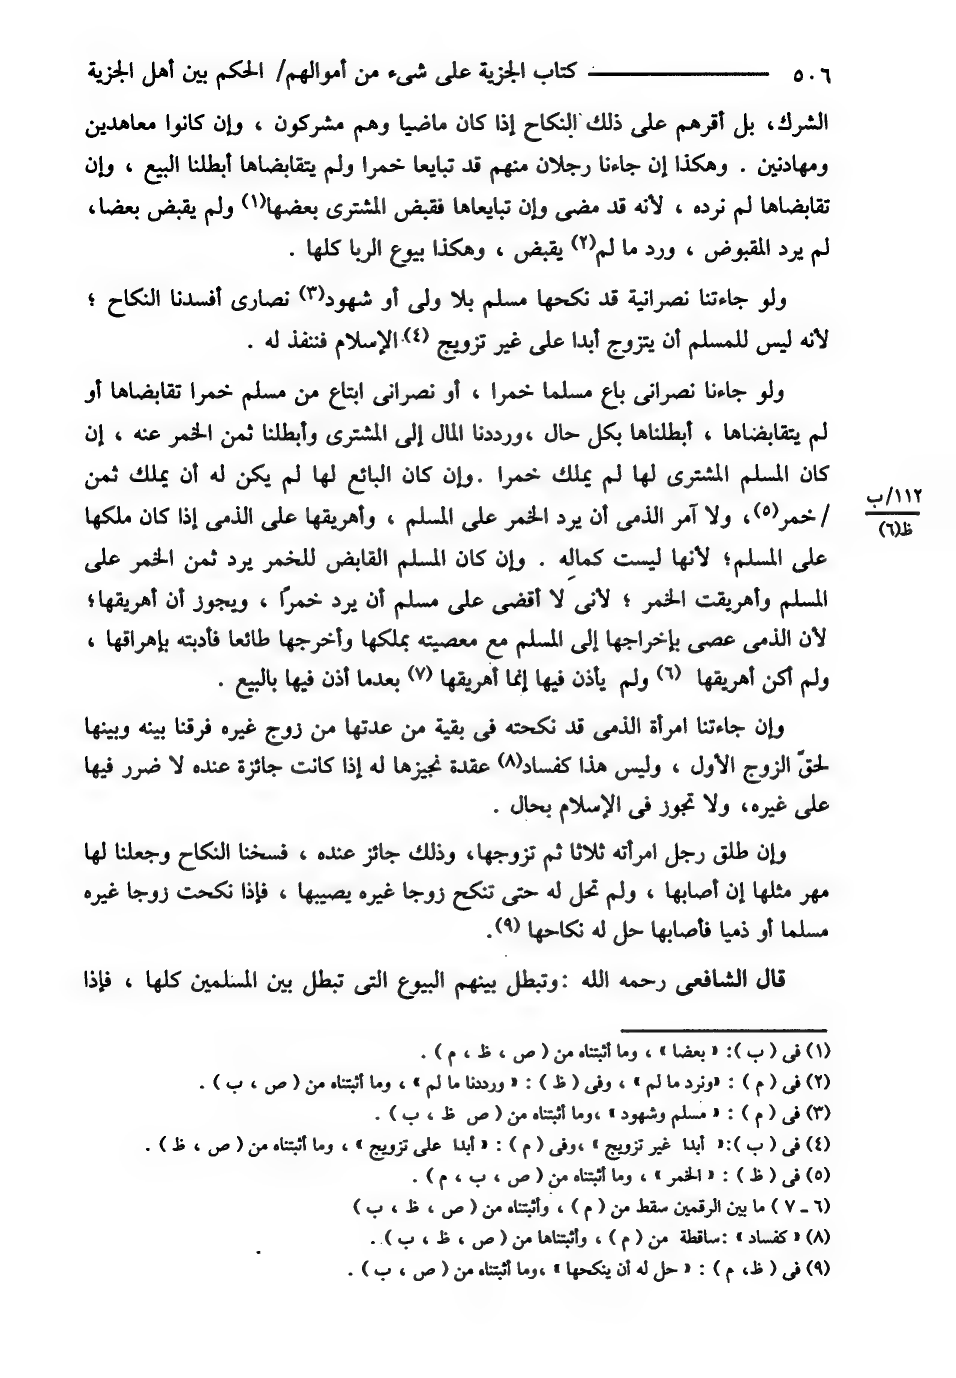 ٥٠٦ ــــــــــــــــ كتاب الجزية على شىء من أموالهم/ الحكم بين أهل الجزية
الشرك، بل أقرهم على ذلك النكاح إذا كان ماضيا وهم مشركون ، وإن كانوا معاهدين
ومهادنين . وهكذا إن جاءنا رجلان منهم قد تبايعا خمرا ولم يتقابضاها أبطلنا البيع ، وإن
تقابضاها لم نرده ، لأنه قد مضى وإن تبايعاها فقبض المشترى بعضها(١) ولم يقبض بعضا،
لم يرد المقبوض ، ورد ما لم(٢) يقبض ، وهكذا بيوع الربا كلها .
ولو جاءتنا نصرانية قد نكحها مسلم بلا ولى أو شهود(٣) نصارى أفسدنا النكاح ؛
لأنه ليس للمسلم أن يتزوج أبدا على غير تزويج (٤) الإسلام فننفذ له .
ولو جاءنا نصرانى باع مسلما خمرا ، أو نصرانى ابتاع من مسلم خمرا تقابضاها أو
لم يتقابضاها ، أبطلناها بكل حال ،ورددنا المال إلى المشترى وأبطلنا ثمن الخمر عنه ، إن
كان المسلم المشترى لها لم يملك خمرا .وإن كان البائع لها لم يكن له أن يملك ثمن
/خمر(٥)، ولا آمر الذمى أن يرد الخمر على المسلم ، وأهريقها على الذمى إذا كان ملكها
١١٢/ب
ظ(٦)
على المسلم؛ لأنها ليست كماله . وإن كان المسلم القابض للخمر يرد ثمن الخمر على
المسلم وأهريقت الخمر ؛ لأنى لا أقضى على مسلم أن يرد خمرًا ، ويجوز أن أهريقها؛
لأن الذمى عصى بإخراجها إلى المسلم مع معصيته بملكها وأخرجها طائعا فأدبته بإهراقها ،
ولم أكن أهريقها (٦) ولم يأذن فيها إنما أهريقها (٧) بعدما أذن فيها بالبيع .
وإن جاءتنا امرأة الذمى قد نكحته فى بقية من عدتها من زوج غيره فرقنا بينه وبينها
لحقّ الزوج الأول ، وليس هذا كفساد(٨) عقدة نجيزها له إذا كانت جائزة عنده لا ضرر فيها
على غيره، ولا تجوز فى الإسلام بحال .
وإن طلق رجل امرأته ثلاثا ثم تزوجها، وذلك جائز عنده ، فسخنا النكاح وجعلنا لها
مهر مثلها إن أصابها ، ولم تحل له حتى تنكح زوجا غيره يصيبها ، فإذا نكحت زوجا غيره
مسلما أو ذميا فأصابها حل له نكاحها (٩).
قال الشافعى رحمه الله :وتبطل بينهم البيوع التى تبطل بين المسلمين كلها ، فإذا
(١) فى ( ب ): « بعضا » ، وما أثبتناه من ( ص ، ظ ، م ) .
(٢) فى ( م ) : «ونرد ما لم» ، وفى ( ظ ) : « ورددنا ما لم » ، وما أثبتناه من ( ص ، ب ) .
(٣) فى ( م ) : « مسلم وشهود» ،وما أثبتناه من ( ص ظ ، ب ) .
(٤) فى ( ب ):« أبدا غير تزويج » ،وفى ( م ) : « أبدا على تزويج » ، وما أثبتناه من ( ص ، ظ ) .
(٥) فى ( ظ ) : « الخمر » ، وما أثبتناه من ( ص ، ب ، م ) .
(٦ ـ ٧ ) ما بين الرقمين سقط من ( م ) ، وأثبتناه من ( ص ، ظ ، ب )
(٨) « كفساد» :ساقطة من ( م ) ، وأثبتناها من ( ص ، ظ ، ب ) .
(٩) فى ( ظ، م ) : « حل له أن ينكحها » ،وما أثبتناه من ( ص ، ب ) .